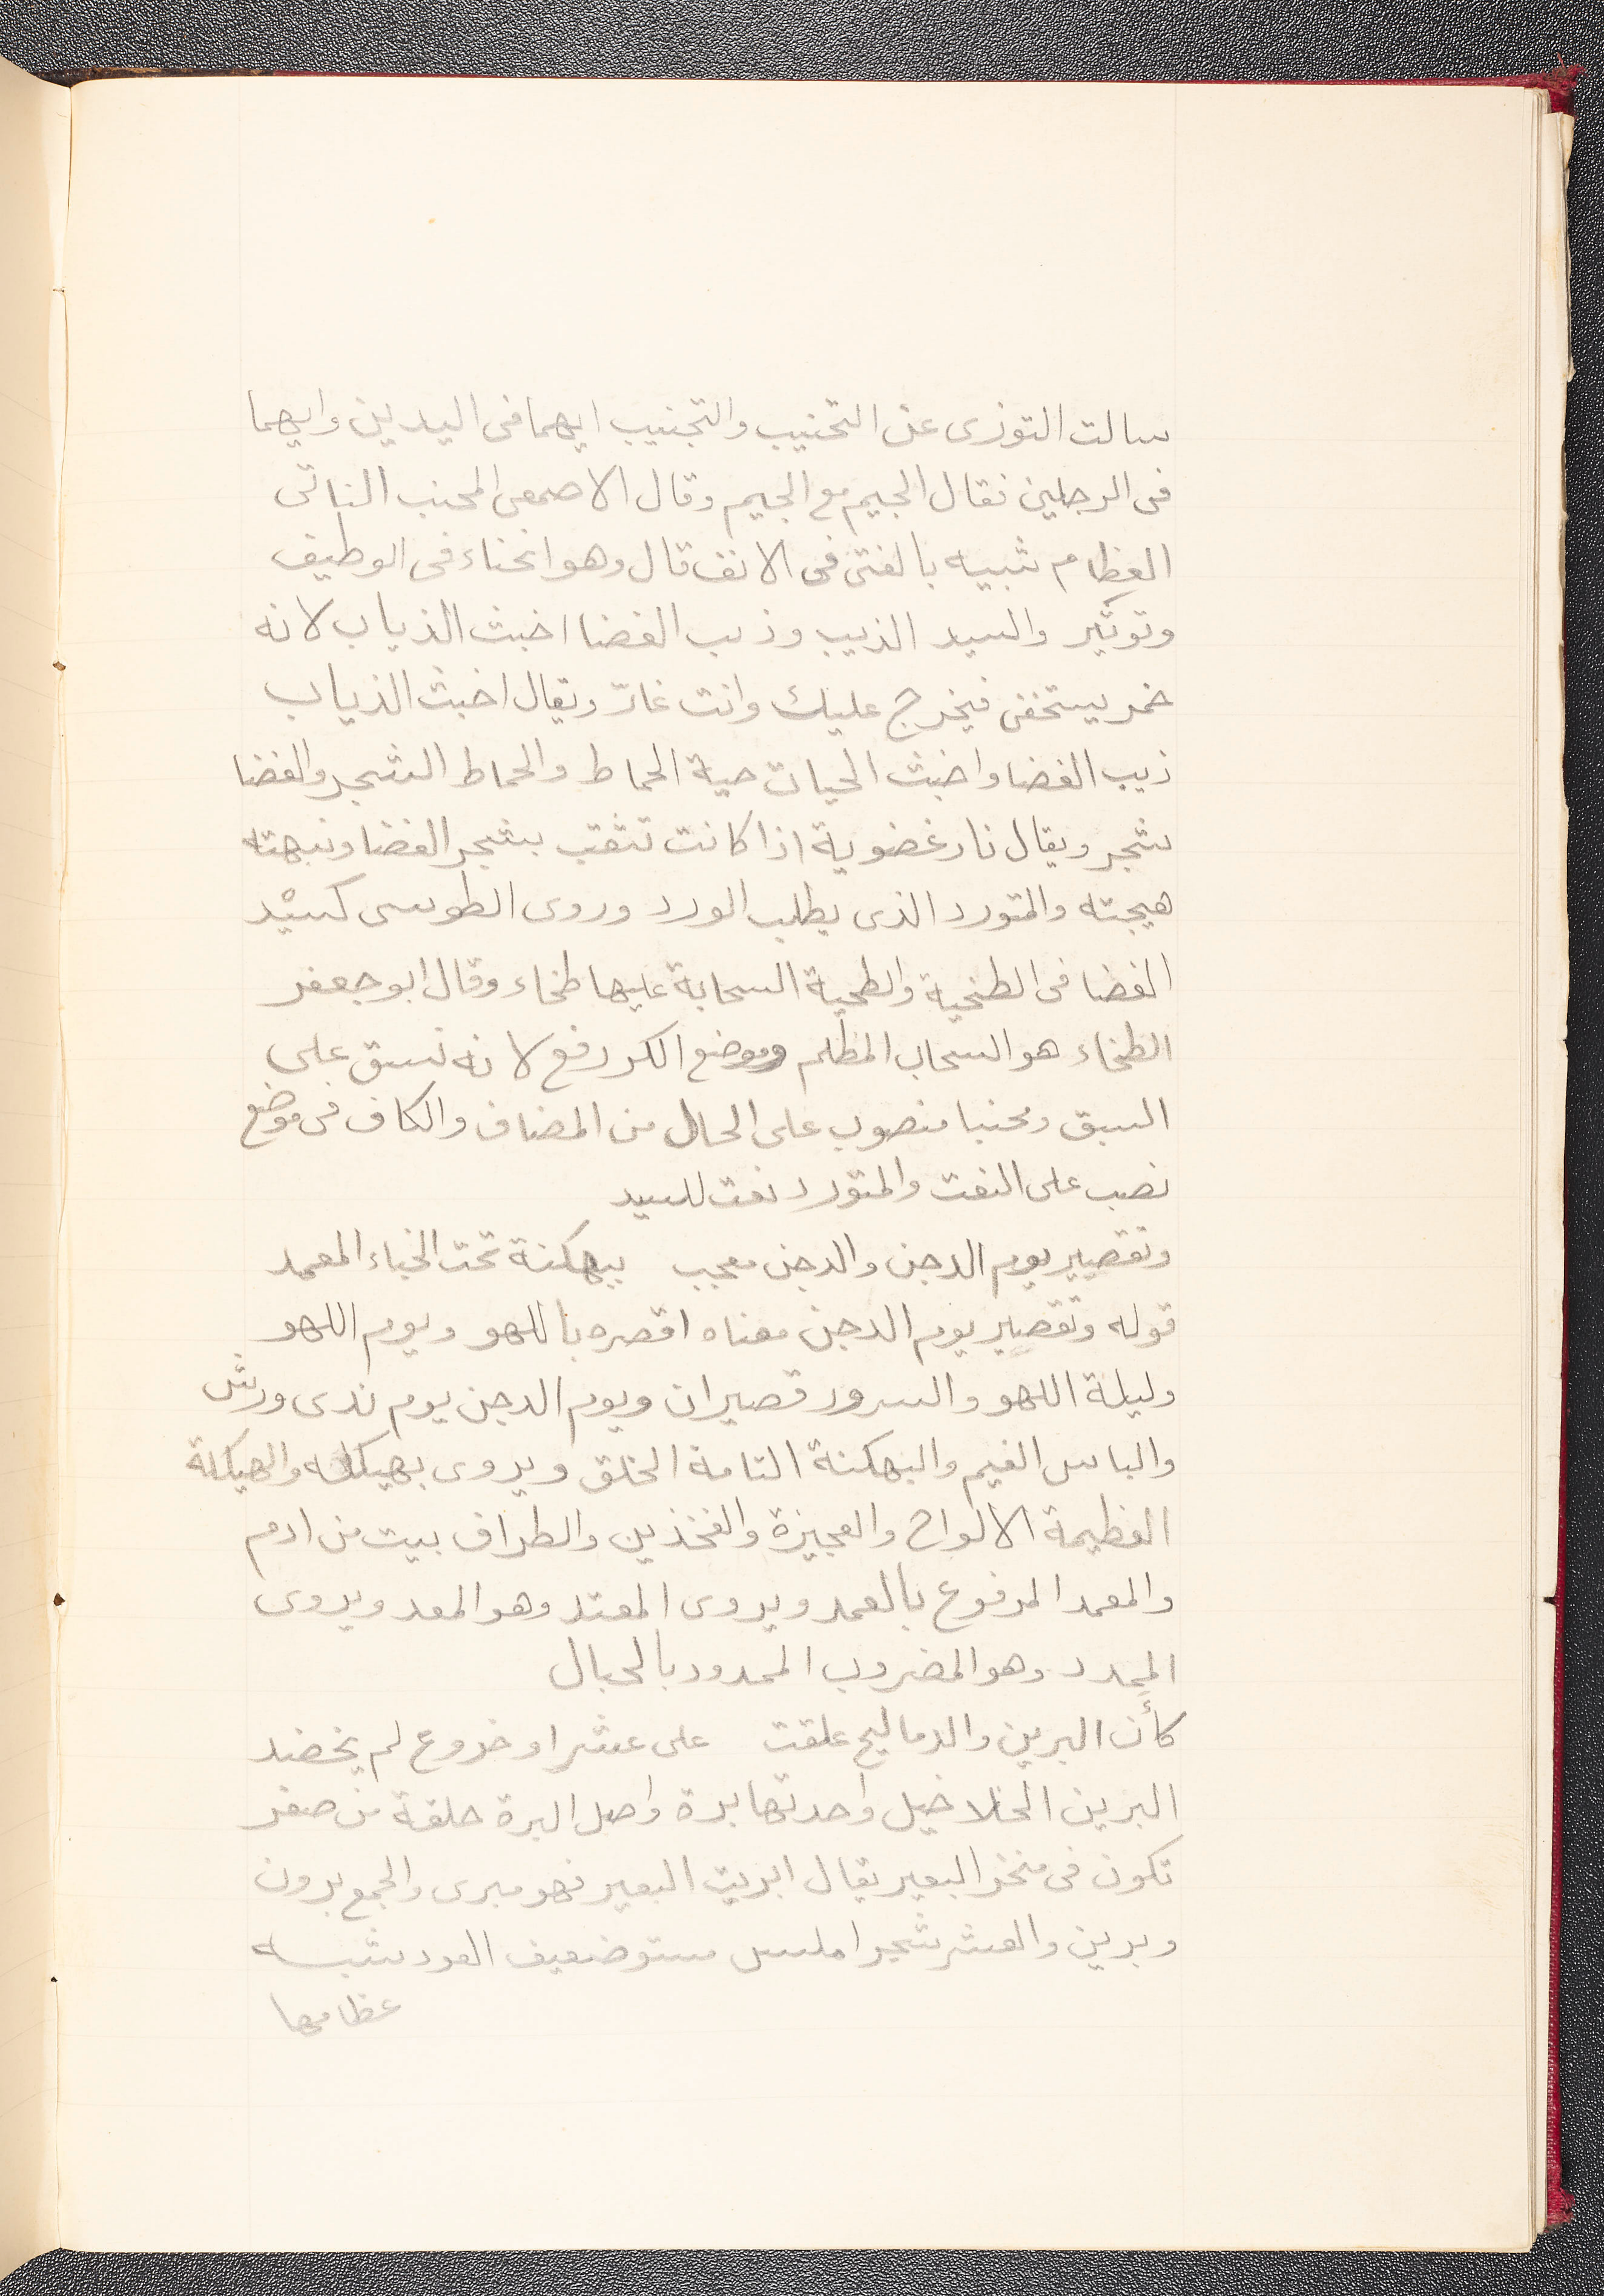 سالت التوزى عن التحنيب والتجنيب ايهما فى اليدين وايهما
فى الرجلين فقال الجيم مع الجيم وقال الاصمعى المحنب الناتى
العظام شبيه بالفتى فى الانف قال وهو انحناء فى الوظيف
وتوتير والسيد الذيب وذيب الغضا اخبث الذياب لانه
خمر يستخفى فيخرج عليك وانت غارّ ويقال اخبث الذياب
ذيب الغضا واخبث الحيات حية الحماط والحماط الشجر والغضا
شجر ويقال نار غضوية اذا كانت تثقب بشجر الغضا ونبهته
هيجته والمتورد الذى يطلب الورد وروى الطوسى كسيْد
الغضا فى الطخية والطخية السحابة عليها طخاء وقال ابو جعفر
الطخاء هو السحاب المظلم وموضع الكر رفع لانه نسق على
السبق ومحنبا منصوب على الحال من المضاف والكاف فى موضع
نصب على النعت والمتورد نعت للسيد
وتقصير يوم الدجن والدجن معجب ببهكنة تحت الخباء المعمد
قوله وتقصير يوم الدجن معناه اقصره باللهو ويوم اللهو
وليلة اللهو والسرور قصيران ويوم الدجن يوم ندى ورش
والباس الغيم والبهكنة التامة الخلق ويروى بهيكله والهيكلة
العظيمة الالواح والعجيزة والفخذين والطراف بيت من ادم
والمعمد المرفوع بالعمد ويروى المعتد وهو المعد ويروى
الممدد وهو المضروب الممدود بالحبال
كأن البرين والدماليج علقت على عشر او خروع لم يخضد
البرين الخلاخيل واحدتها برة واصل البرة حلقة من صفر
تكون فى منخر البعير يقال ابريت البعير فهو مبرى والجمع برون
وبرين والعشر شجر املس مستو ضعيف العود شبه
عظامها